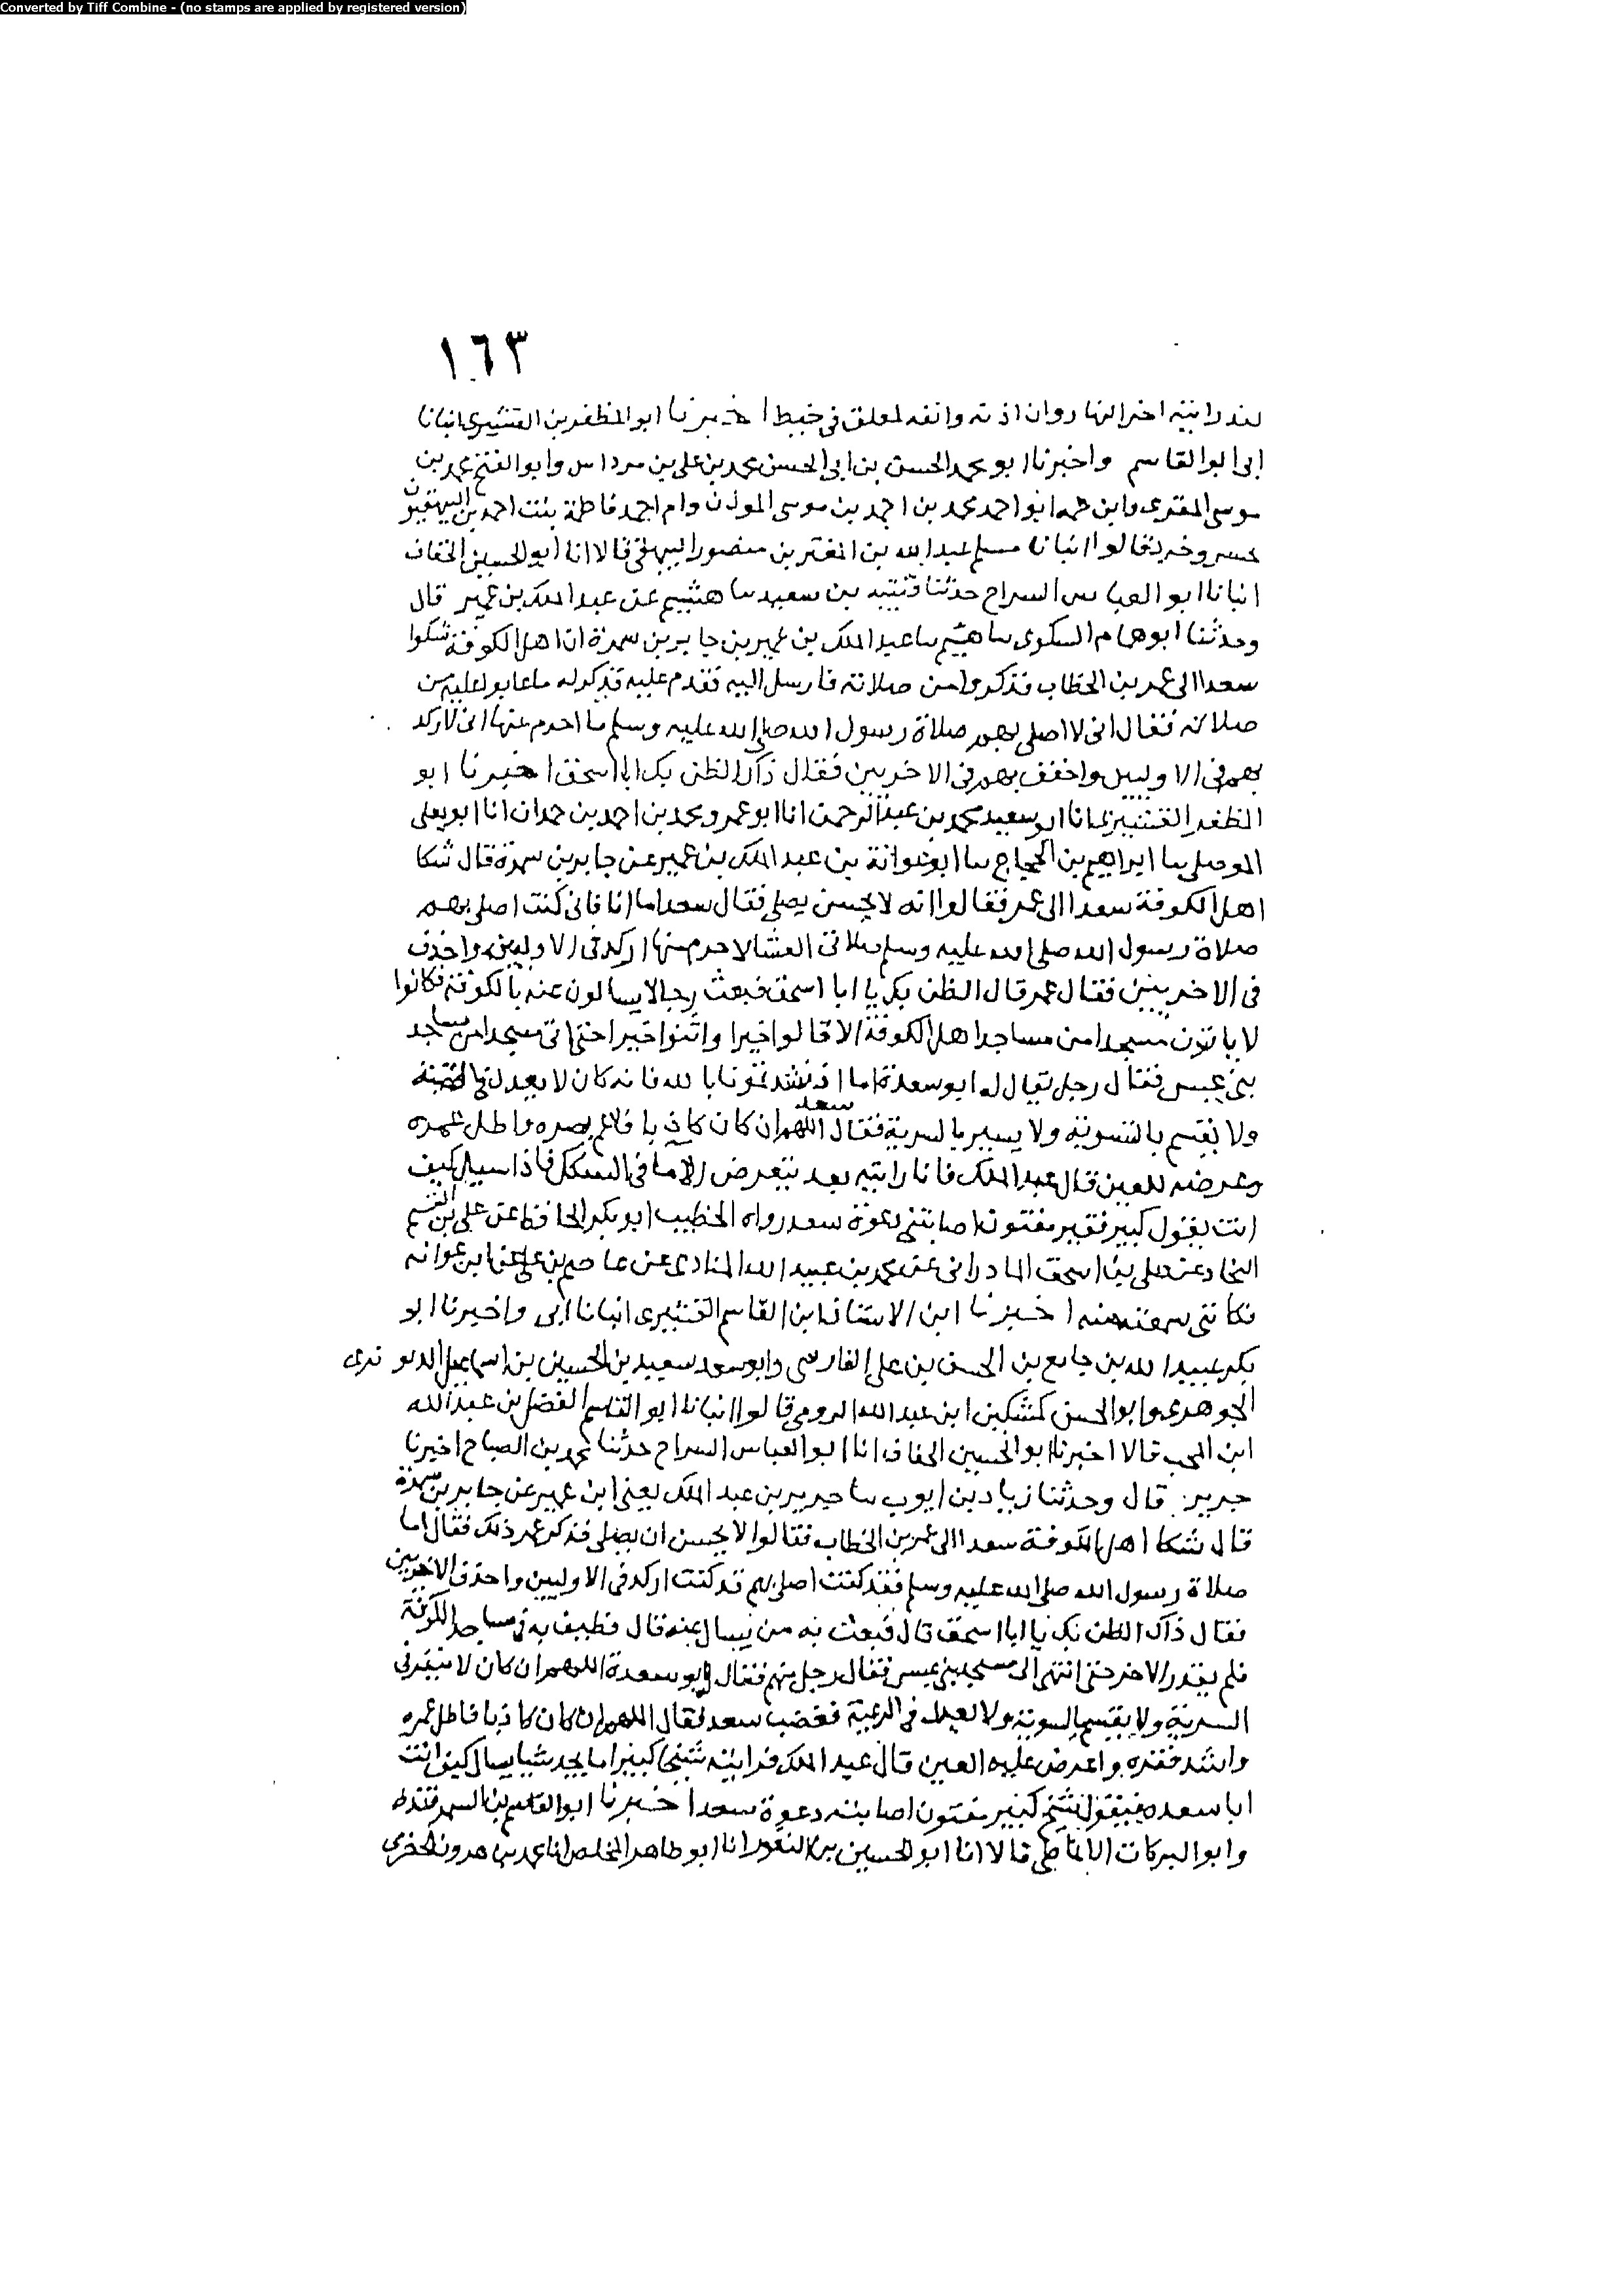 Converted by Tiff Combine - (no stamps are applied by registered version)
١٦٣
لقد رايته اخر النهار وان اذنه وانفه لمعلق في خيط اخبرنا ابو المظفر بن القشيري انبانا
ابي ابو القاسم واخبرنا ابو محمد الحسن بن ابي الحسن محمد بن علي بن مرداس وابو الفتح محمد بن
موسى المقرى وابن حمه ابو احمد محمد بن احمد بن موسى الموذن وام احمد فاطمة بنت احمد بن البيهقيون
بخسروجرد قالوا انبانا مسلم عبد الله بن المعتز بن منصور البيهقي قالا انا ابو الحسين الخفاف
انبانا ابو العباس السراج حدثنا قتيبة بن سعيد سا هشيم عن عبد الملك بن عمير قال
وحدثنا ابو همام السكوى سا هشيم سا عبد الملك بن عمير بن جابر بن سمرة ان اهل الكوفة شكوا
سعدا الى عمر بن الخطاب فذكروا من صلاته فارسل اليه فقدم عليه فذكر له ما عابوا عليه من
صلاته فقال اني لا اصلي بهم صلاة رسول الله صلى الله عليه وسلم ما احرم عنها اني لاركد
بهم في الاوليين واخفف بهم في الاخريين فقال ذاك الظن بك ابا اسحق اخبرنا ابو
المظفر القشيري انا ابو سعيد محمد بن عبد الرحمن انا ابو عمرو محمد بن احمد بن حمدان انا ابو يعلى
الموصلي سا ابراهيم بن الحجاج سا ابو عوانة بن عبد الملك بن عمير عن جابر بن سمرة قال شكا
اهل الكوفة سعدا الى عمر فقالوا انه لا يحسن يصلي فقال سعد اما انا فاني كنت اصلي بهم
صلاة رسول الله صلى الله عليه وسلم صلاتى العشا لا احرم منها اركد في الاوليين واحذف
في الاخريين فقال عمر قال الظن بك يا ابا اسحق فبعث رجالا يسالون عنه بالكوفة فكانوا
لا ياتون مسجدا من مساجد اهل الكوفة الا قالوا خيرا واثنوا خيرا حتى اتى مسجدا من مساجد
بني عبس فقال رجل يقال له ابو سعدة اما اذ نشدتمونا بالله فانه كان لا يعدل في القضية
ولا يقسم بالتسوية ولا يسير بالسرية فقال سعد اللهم ان كان كاذبا فاعم بصره واطل عمره
وعرضه للعين قال عبد الملك فانا رايته بعد يتعرض الاما في السكك فاذا سيل كيف
انت يقول كبير فقير مفتون اصابتني دعوة سعد رواه الخطيب ابو بكر الحافظ عن علي بن القسم
النجاد عن علي بن اسحق المادراني عن محمد بن عبيد الله المنادي عن عاصم بن علي عن ابن عوانه
فكانني سمعته منه اخبرنا ابن الاستاذ ابن القاسم القشيري انبانا ابي واخبرنا ابو
بكر عبيد الله بن جامع بن الحسن بن علي الفارسي وابو سعد سعيد بن الحسين بن اسماعيل الديوندى
الجوهري وابو الحسن كمشكين ابن عبد الله الرومي قالوا انبانا ابو القاسم الفضل بن عبد الله
ابن المحب قالا اخبرنا ابو الحسين الخفاف انا ابو العباس السراج حدثنا محمد بن الصباح اخبرنا
جرير قال وحدثنا زياد بن ايوب سا جرير بن عبد الملك يعني ابن عمير عن جابر بن سمرة
قال شكا اهل الكوفة سعدا الى عمر بن الخطاب فقالوا لا يحسن ان يصلي فذكر عمر ذلك فقال اما
صلاة رسول الله صلى الله عليه وسلم فقد كنت اصلي بهم قد كنت اركد في الاوليين واحذف الاخريين
فقال ذاك الظن بك يا ابا اسحق قال فبعث به من يسال عنه قال فطيف به في مساجد الكوفة
فلم يقدر الا خير حتى انتهى الى مسجد بني عبس فقال رجل منهم فقال ابو سعدة اللهم ان كان لا ينفر في
السرية ولا يقسم بالسوية ولا يعدل في الرعية فغضب سعد فقال اللهم ان كان كاذبا فاطل عمره
واشد فقره واعرض عليه العين قال عبد الملك فرايته شيخا كبيرا ما يجد شيا يسال كيف انت
ابا سعده فيقول شيخ كبير مفتون اصابته دعوة سعد اخبرنا ابو القاسم بن السمرقندي
وابو البركات الانماطي قالا انا ابو الحسين بن النقور انا ابو طاهر المخلص انا محمد بن هرون الحضرمي